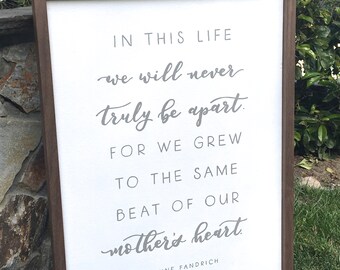 IN THIS LIFE
we will never
truly be apart.
FOR WE GREW
TO THE SAME
BEAT OF OUR
mother's heart.
FANDRICH